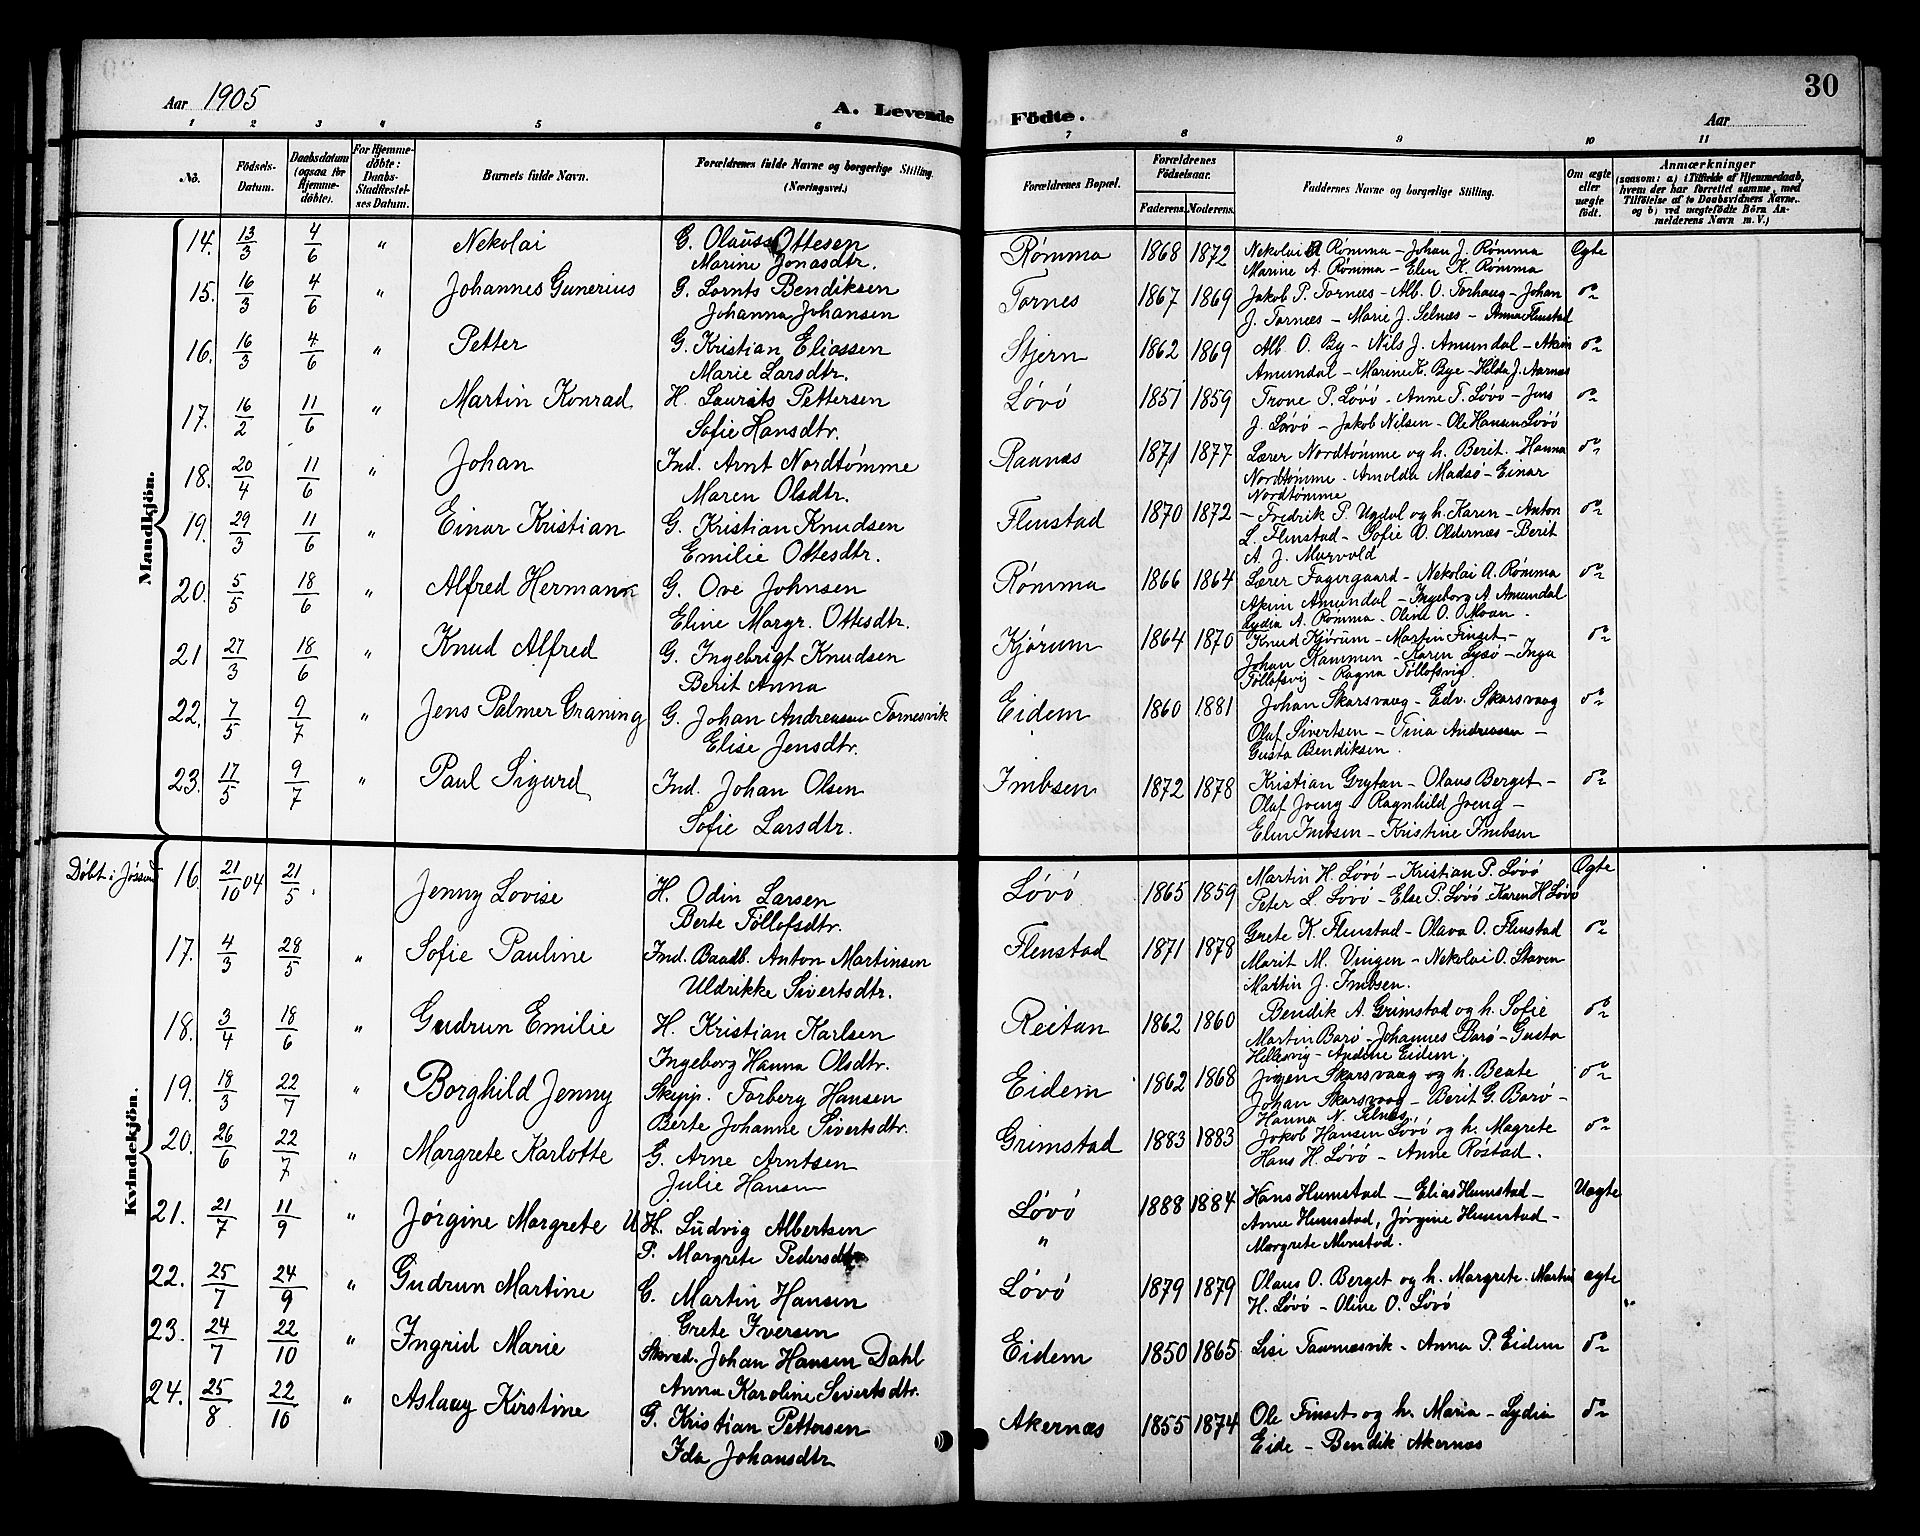 Aar 1905
A. Levende Födte.
Aar
30
1 2 3 4 5 6 7 8 9 10 11
No.
Födsels-Datum.
Daabsdatum (ogsaa for Hjemme-döbte).
For Hjemme-döbte: Daabs-Stadfæstel-ses Datum.
Barnets fulde Navn.
Forældrenes fulde Navne og borgerlige Stilling. (Næringsvei.)
Forældrenes Bopæl.
Forældrenes Födselsaar.
Faderens. Moderens.
Faddernes Navne og borgerlige Stilling.
Om ægte eller uægte födt.
Anmærkninger
(saasom: a) i Tilfælde af Hjemmedaab, hvem der har forrettet samme, med Tilföielse af to Daabsvidners Navne. og b) ved uægtefödte Börn An-melderens Navn m. V.)
Mandkjön.
14. 13/3 4/6 " Nekolai G. Olaus Ottesen Rømma 1868 1872 Nekolai A Rømma – Johan J. Rømma Ægte
Marine Jonasdtr. Marine A. Rømma – Elen K. Rømma
15. 16/3 4/6 " Johannes Gunerius G. Lornts Bendiksen Tornes 1867 1869 Jakob P. Tornæs – Alb. O. Torhaug – Johan do
Johanna Johansen J. Tornæs – Marie J. Selnæs – Anna Flenstad
16. 16/3 4/6 " Petter G. Kristian Eliassen Stjern 1862 1869 Alb. O. By – Nils J. Amundal – Akim do
Marie Larsdtr. Amundal – Marine K. Bye – Hilda J. Aarnæs
17. 16/2 11/6 " Martin Konrad H. Laurits Pettersen Løvø 1851 1859 Trone P. Løvø – Anne T. Løvø – Jens do
Sofie Hansdtr. J. Løvø – Jakob Nilsen – Ole Hansen Løvö
18. 20/4 11/6 " Johan Ind. Arnt Nordtømme Raanæs 1871 1877 Lærer Nordtømme og h. Berit – Hanna do
Maren Olsdtr. Nordtømme – Arnolda Madsø – Einar
Nordtømme
19. 29/3 11/6 " Einar Kristian G. Kristian Knudsen Flenstad 1870 1872 – Fredrik P. Ugdal og h. Karen – Anton do
Emilie Ottesdtr. L. Flenstad – Sofie O. Oldernæs – Berit
A. J. Murvold
20. 5/5 18/6 " Alfred Hermann G. Ove Johnsen Rømma 1866 1864 Lærer Fagergaard – Nekolai A. Rømma do
Eline Margr. Ottesdtr. Akim Amundal – Ingeborg A. Amundal
Lydia A. Rømma – Oline O. Moan.
21 27/3 18/6 " Knud Alfred G. Ingebrigt Knudsen Kjørum 1864 1870 Knud Kjørum – Martin Finset – do
Berit Anna Johan Kammen – Karen Lysø – Inga
Tøllefsvig – Ragna Tøllofsvig.
22. 7/5 9/7 " Jens Palmer Graning G. Johan Andreassen Tornesvik Eidem 1860 1881 Johan Skarsvaag – Edv. Skarsvaag do
Elise Jensdtr. Olaf Sivertsen – Tina Andreassen –
Gusta Bendiksen.
23. 17/5 9/7 " Paul Sigurd Ind. Johan Olsen Imbsen 1872 1878 Kristian Grytan – Olaus Berget – do
Sofie Larsdtr. Olaf Joeng – Ragnhild Joeng –
Elen Imbsen – Kristine Imbsen
Kvindekjön.
Døbt i Jøssund 16. 21/10 04 21/5 Jenny Lovise H. Odin Larsen Løvö 1865 1859 Martin H. Løvø – Kristian P. Løvø Ægte
Berte Tøllefsdtr. Peter L. Løvø – Else P. Løvö – Karen H. Løvö
17. 4/3 28/5 " Sofie Pauline Ind. Baadb. Anton Martinsen Flenstad 1871 1878 Grete K. Flenstad – Olava O. Flenstad do
Uldrikke Sivertsdtr. Marit M. Vingen – Nekolai O. Staven
Martin J. Imbsen.
18. 3/4 18/6 " Gudrun Emilie H. Kristian Karlsen Reitan 1862 1860 Bendik A. Grimstad og h. Sofie do
Ingeborg Hanna Olsdtr. Martin Barø – Johannes Barø – Gusta
Hellesvig – Andrine Eidem.
19. 18/3 22/7 " Borghild Jenny Skipp. Torberg Hansen Eidem 1862 1868 Jørgen Skarsvaag og h. Beate do
Berte Johanne Sivertsdtr. Johan Skarsvaag – Berit G. Barø –
Hanna N. Selnæs
20. 26/6 22/7 " Margrete Karlotte G. Arne Arntsen Grimstad 1883 1883 Jakob Hansen Løvö og h. Magrete do
Julie Hansen Hans H. Løvö – Anne Røstad.
21. 21/7 11/9 " Jørgine Margrete U. H. Ludvig Albertsen Løvö 1888 1884 Hans Humstad – Elias Humstad – Uægte
P. Margrete Pedersdtr " Anne Humstad, Jørgine Humstad –
Margrete Monstad.
22. 25/7 24/9 " Gudrun Martine G. Martin Hansen Løvö 1879 1879 Olaus O. Berget og h. Margrete. Martin ægte
Grete Iversen H. Løvø – Oline O. Løvö
23. 24/7 22/10 " Ingrid Marie Skræd. Johan Hansen Dahl Eidem 1850 1865 Lisi Taarnæsvik – Anna P. Eidem do
Anna Karoline Sivertsdtr.
24. 25/8 22/10 " Aslaug Kirstine G. Kristian Pettersen Akernæs 1855 1874 Ole Finset og h. Maria – Lydia do
Ida Johansdtr Eide – Bendik Akernæs